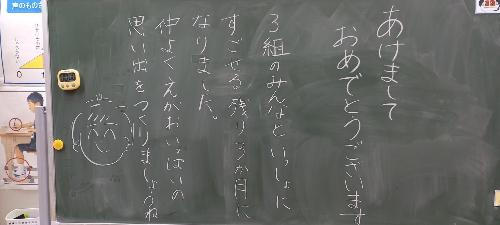 あけまして
おめでとうございます
3組のみんなといっしょに
すごせる残り3か月に
なりました。
仲よくえがおいっぱいの
思い出をつくりましょうね
声のものさ